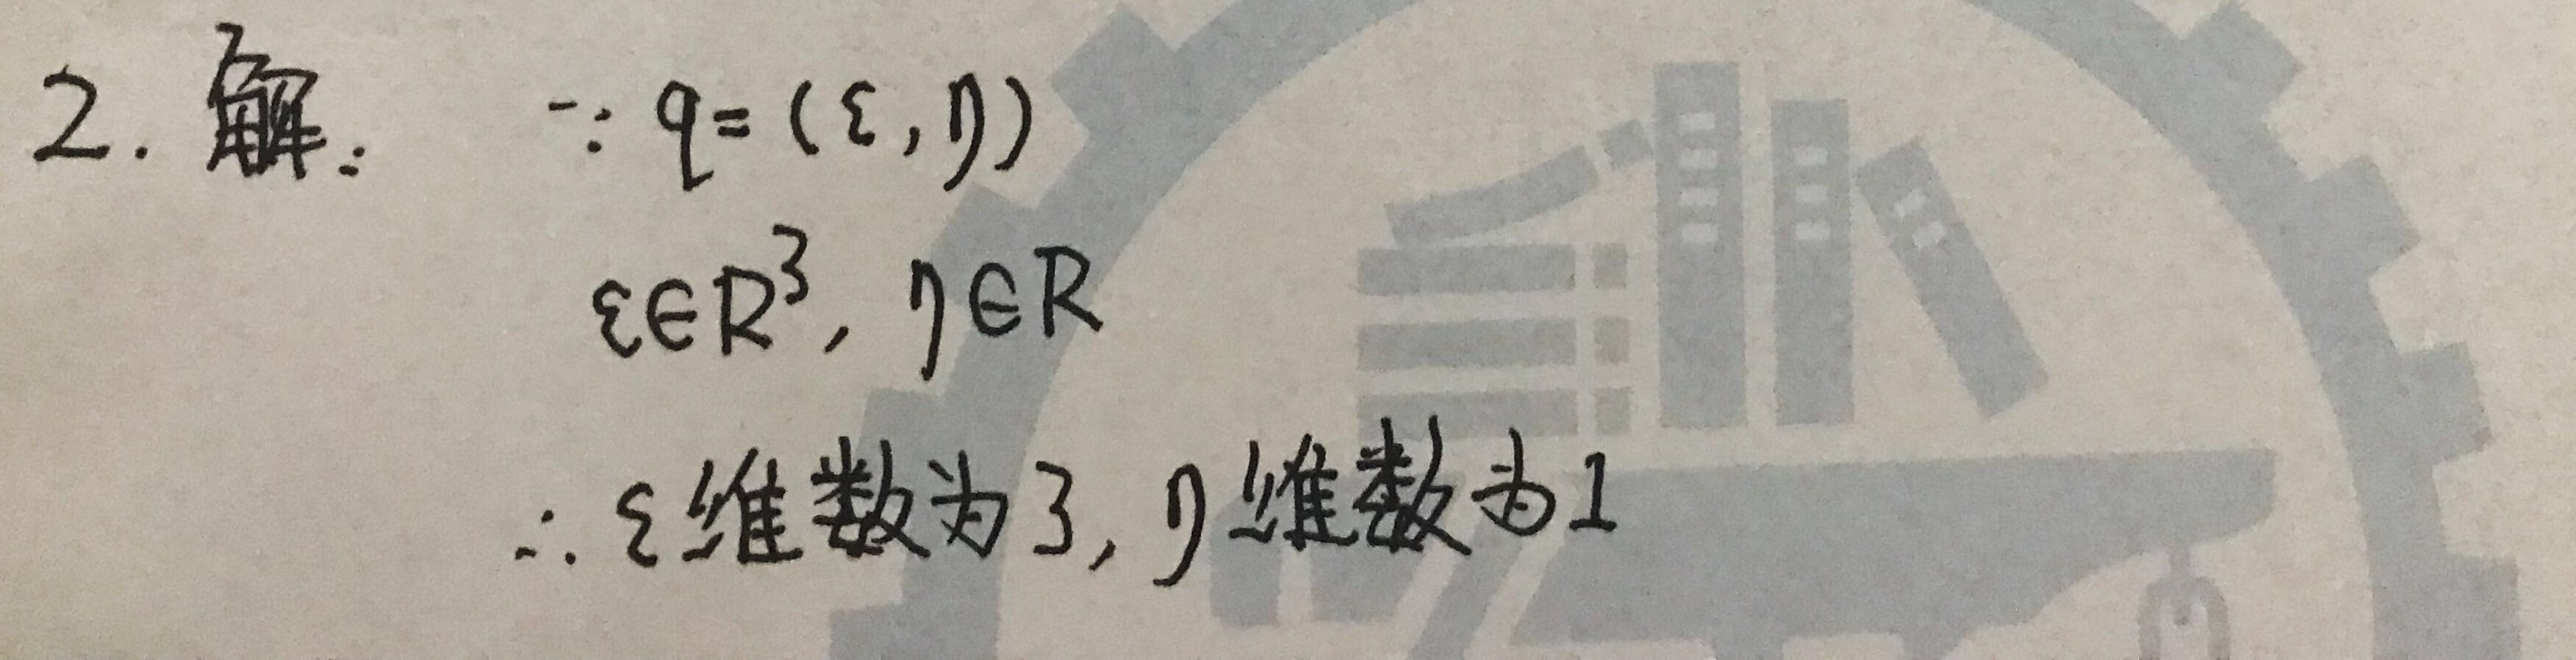 2. 解: ∵ q=(ε,η)
ε∈R³, η∈R
∴ ε维数为3, η维数为1